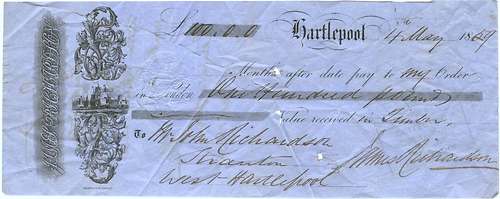 £ 100.0.0 Hartlepool 4th May 1869
Months after date pay to my Order
in London One Hundred pounds
Value received in Timber.
To Mr John Richardson
Stranton James Richardson
West Hartlepool